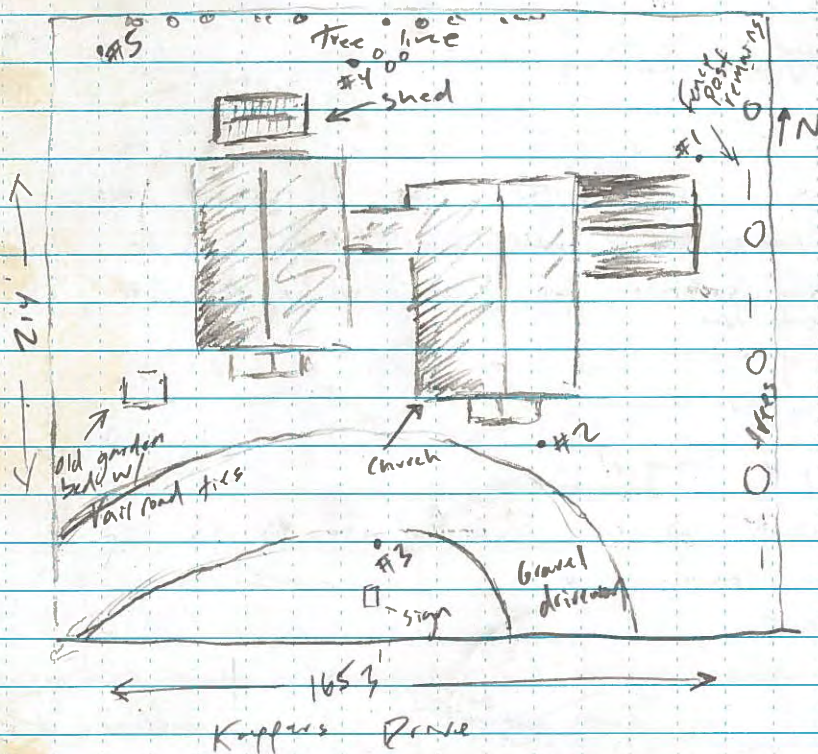 tree line
#5
#4
shed
Fence
post
remaining
N
#1
214'
old garden
beds w/
railroad ties
church
#2
trees
#3
sign
Gravel
driveway
Drive